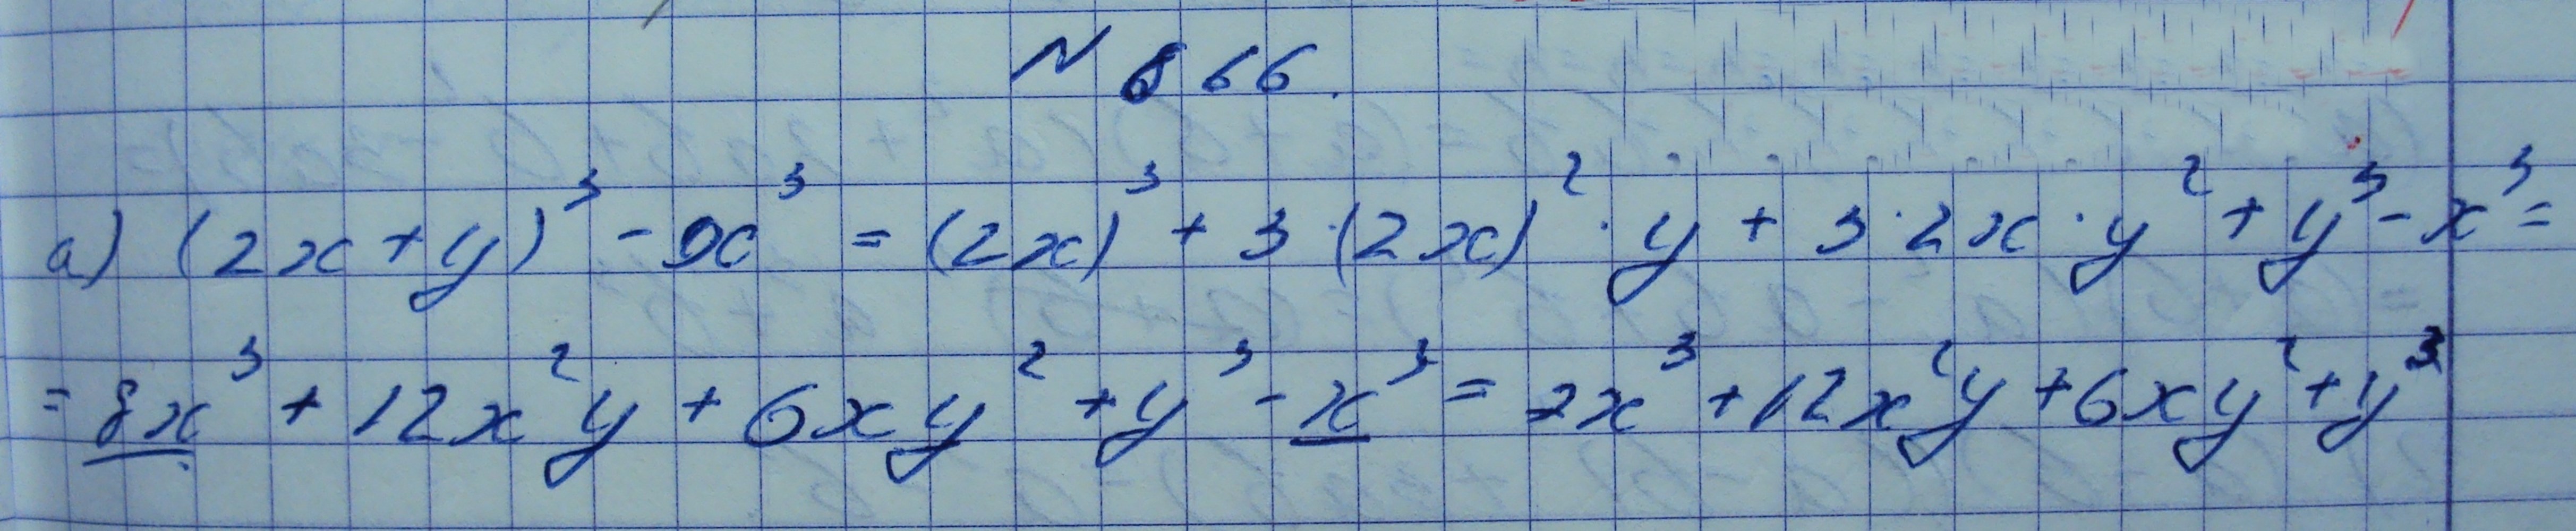 N 866.
а) (2x+y)³ - x³ = (2x)³ + 3·(2x)²·y + 3·2x·y² + y³ - x³ =
= 8x³ + 12x²y + 6xy² + y³ - x³ = 7x³ + 12x²y + 6xy² + y³